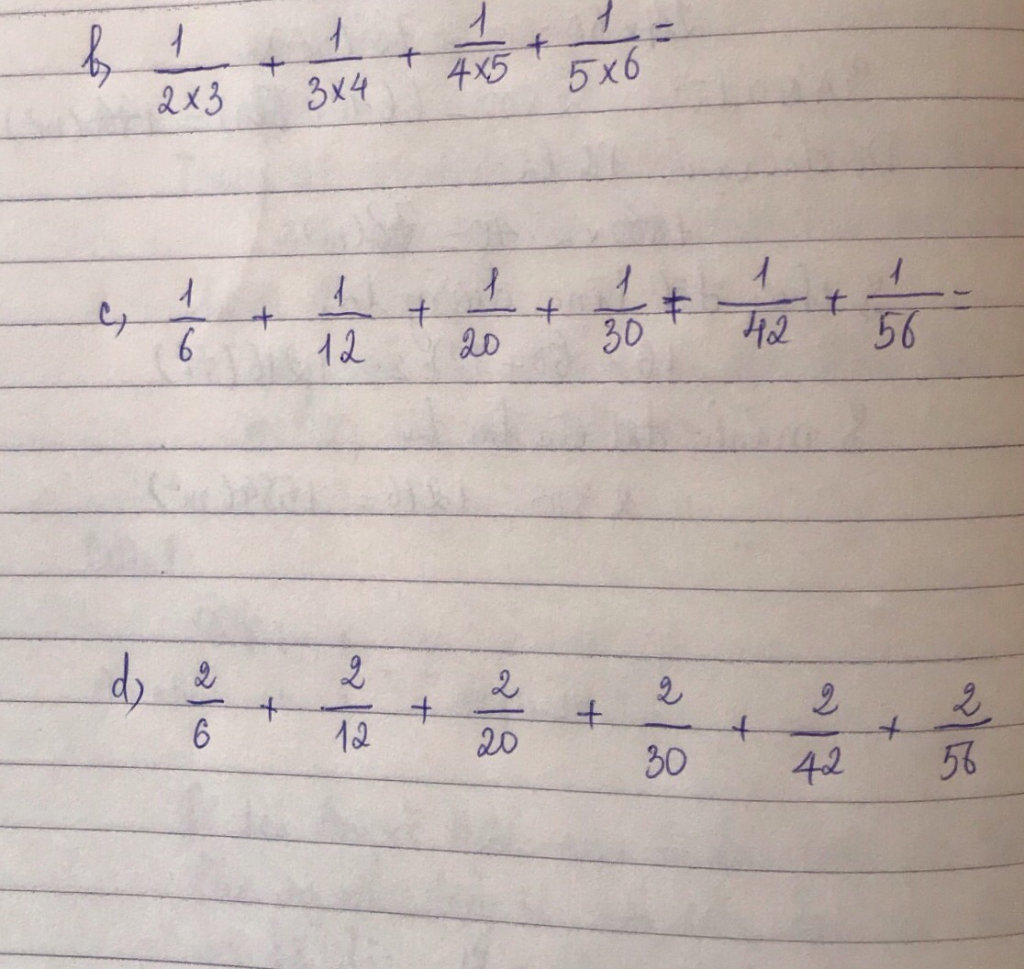 b, 1/2×3 + 1/3×4 + 1/4×5 + 1/5×6 =
c, 1/6 + 1/12 + 1/20 + 1/30 + 1/42 + 1/56 =
d, 2/6 + 2/12 + 2/20 + 2/30 + 2/42 + 2/56